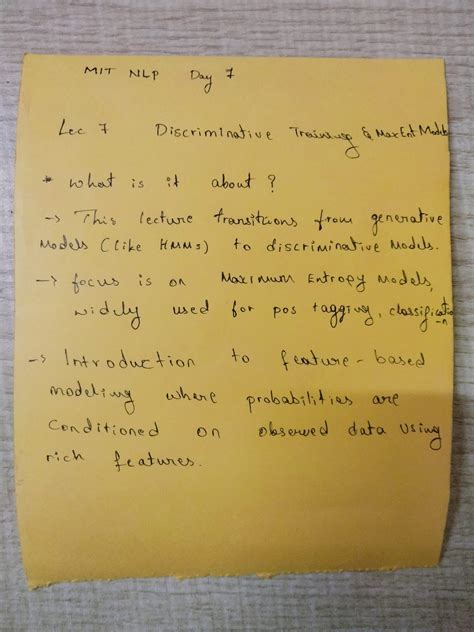 MIT NLP Day 7
Lec 7 Discriminative Training & MaxEnt Models
* what is it about ?
-> This lecture transitions from generative
Models (like HMMs) to discriminative Models.
-> focus is on Maximum Entropy Models,
widely used for pos tagging, classification
-> Introduction to feature-based
modeling where probabilities are
conditioned on observed data using
rich features.